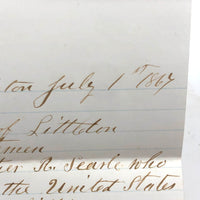 ton July 1st 1867
of Littleton
men
er A. Searle who
the United States